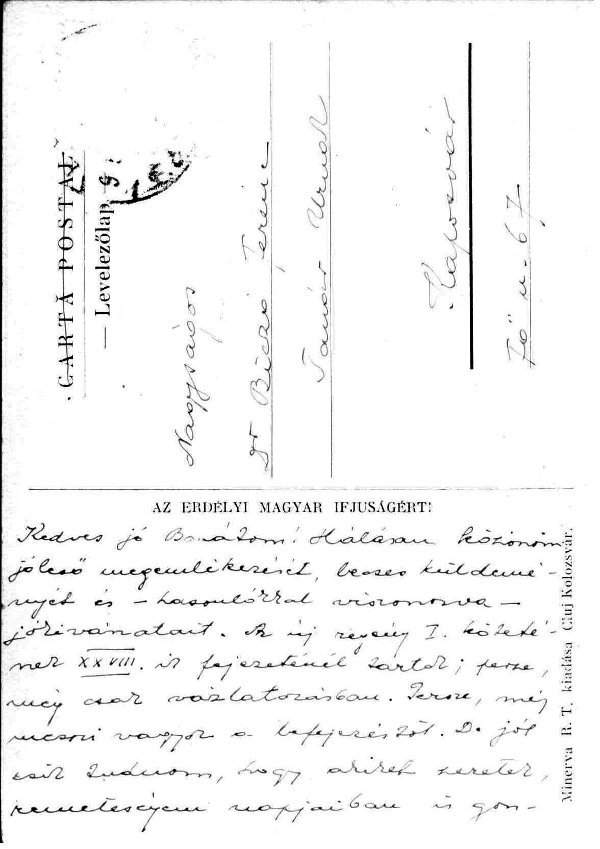 CARTĂ POSTALĂ
— Levelezőlap —
Nagyságos
dr Biczó Ferenc
Tanár Urnak
Kaposvár
Fő u. 67
AZ ERDÉLYI MAGYAR IFJUSÁGÉRT!
Kedves jó Barátom! Hálásan köszönöm
jóleső megemlékezését, becses küldemé-
nyét és – hasonlókkal viszonozva –
jókivánatait. Az új regény I. köteté-
nek XXVIII. ik fejezeténél tartok; persze,
még csak vázlatozásban. Persze, még
messzi vagyok a befejezéstől. De jól
esik tudnom, hogy akiket szeretek,
remeteségem napjaiban is gon-
Minerva R. T. kiadása Cluj Kolozsvár.